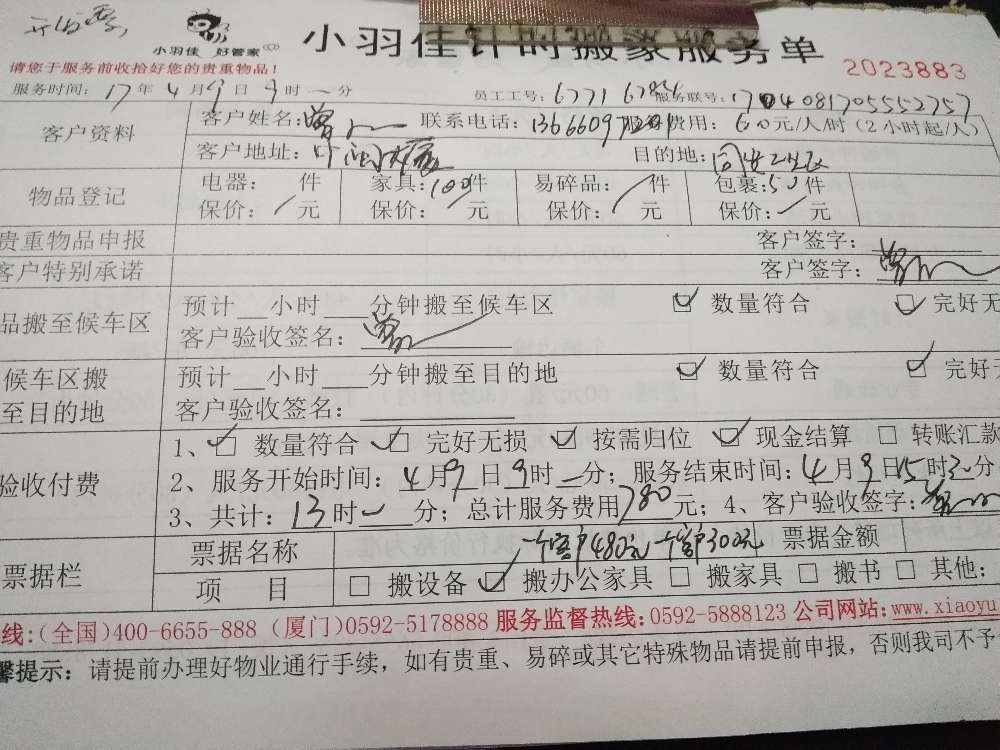 小羽佳 好管家
小羽佳计时搬家服务单
2023883
请您于服务前收拾好您的贵重物品！
服务时间：17年4月9日9时一分 员工工号：6771 服务联号：1704081705552757
客户资料 客户姓名：曾 联系电话： 服务费用：60元/人/时（2小时起/人）
客户地址： 目的地：同安工业区
物品登记 电器： 件 家具：100件 易碎品：/件 包裹：50件
保价：/元 保价： 元 保价：/元 保价：/元
贵重物品申报 客户签字：
客户特别承诺 客户签字：曾
品搬至候车区 预计__小时___分钟搬至候车区 ☑ 数量符合 ☑ 完好无
客户验收签名：曾
候车区搬至目的地 预计__小时___分钟搬至目的地 ☑ 数量符合 ☑ 完好无
客户验收签名：
验收付费 1、☑ 数量符合 ☑ 完好无损 ☑ 按需归位 ☑ 现金结算 □ 转账汇款
2、服务开始时间：4月9日9时一分；服务结束时间：4月9日15时30分
3、共计：13时一分；总计服务费用780元；4、客户验收签字：曾
票据栏 票据名称 一个客户480元一个客户300元 票据金额
项 目 □ 搬设备 ☑ 搬办公家具 □ 搬家具 □ 搬书 □ 其他：
线：(全国)400-6655-888 (厦门)0592-5178888 服务监督热线：0592-5888123 公司网站：www.xiaoyu
馨提示：请提前办理好物业通行手续，如有贵重、易碎或其它特殊物品请提前申报，否则我司不予